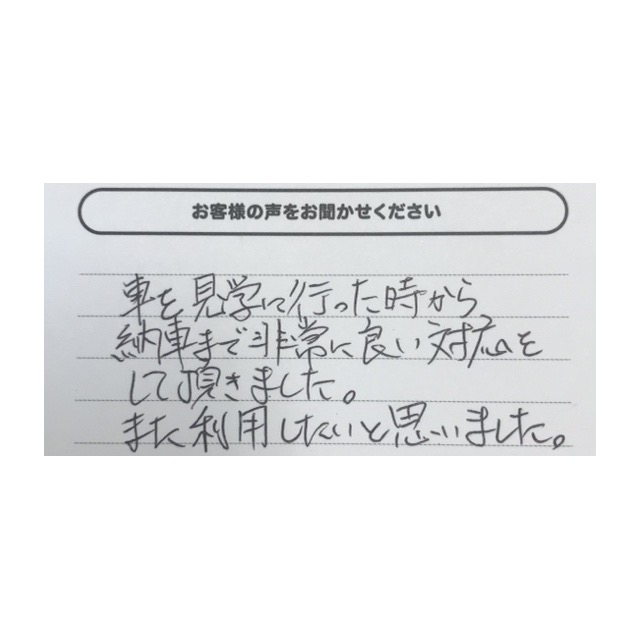 お客様の声をお聞かせください
車を見学に行った時から
納車まで非常に良い対応を
して頂きました。
また利用したいと思いました。